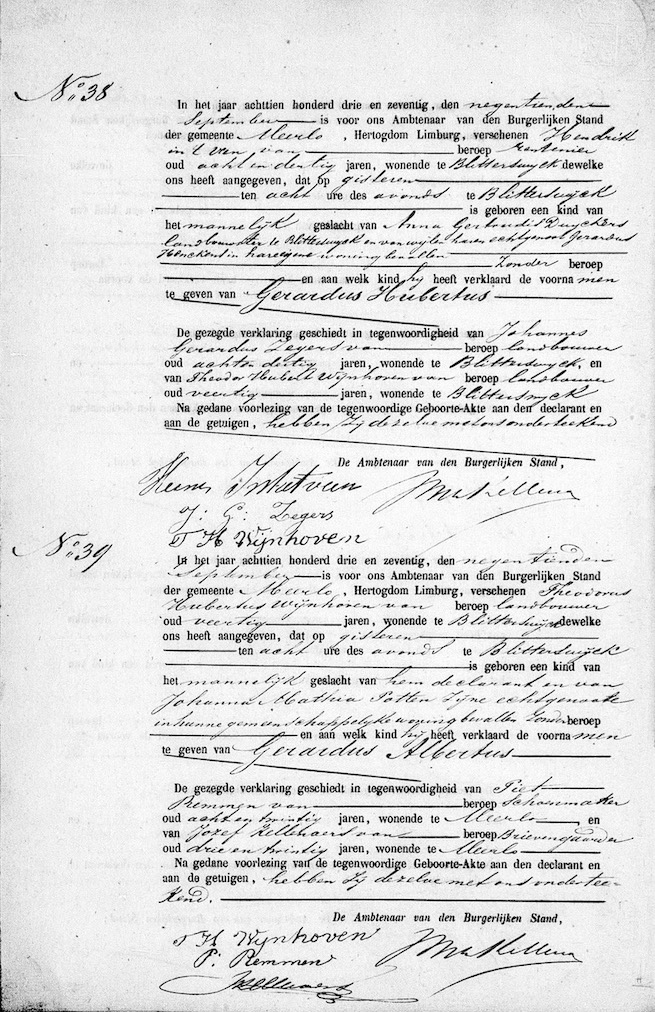 No. 38
In het jaar achttien honderd drie en zeventig, den negentienden
September is voor ons Ambtenaar van den Burgerlijken Stand
der gemeente Meerlo, Hertogdom Limburg, verschenen Hendrik
in 't Ven van beroep rentenier
oud acht en dertig jaren, wonende te Blitterswyck dewelke
ons heeft aangegeven, dat op gisteren
ten acht ure des avonds te Blitterswyck
is geboren een kind van
het mannelijk geslacht van Anna Gertrudis Duyckers
landbouwster te Blitterswyck en van wijlen haren echtgenoot Gerardus
in hare eigene woning bevallen Zonder beroep
en aan welk kind hij heeft verklaard de voornamen
te geven van Gerardus Hubertus
De gezegde verklaring geschiedt in tegenwoordigheid van Johannes
Gerardus Zegers van beroep landbouwer
oud acht en dertig jaren, wonende te Blitterswyck, en
van Theodor Hubert Wijnhoven van beroep landbouwer
oud veertig jaren, wonende te Blitterswyck
Na gedane voorlezing van de tegenwoordige Geboorte-Akte aan den declarant en
aan de getuigen, hebben zij dezelve met ons onderteekend
De Ambtenaar van den Burgerlijken Stand,
J: G: Zegers
T H Wijnhoven
No. 39
In het jaar achttien honderd drie en zeventig, den negentienden
September is voor ons Ambtenaar van den Burgerlijken Stand
der gemeente Meerlo, Hertogdom Limburg, verschenen Theodorus
Hubertus Wijnhoven van beroep landbouwer
oud veertig jaren, wonende te Blitterswyck dewelke
ons heeft aangegeven, dat op gisteren
ten acht ure des avonds te Blitterswyck
is geboren een kind van
het mannelijk geslacht van hem declarant en van
Johanna Mathia Potten zijne echtgenoote
in hunne gemeenschappelyke woning bevallen zonder beroep
en aan welk kind hij heeft verklaard de voornamen
te geven van Gerardus Albertus
De gezegde verklaring geschiedt in tegenwoordigheid van Piet
Remmen van beroep Schoenmaker
oud acht en twintig jaren, wonende te Meerlo, en
van Jozef Kellenaers van beroep Brievengaarder
oud drie en twintig jaren, wonende te Meerlo
Na gedane voorlezing van de tegenwoordige Geboorte-Akte aan den declarant en
aan de getuigen, hebben zij dezelve met ons onderteekend.
De Ambtenaar van den Burgerlijken Stand,
T H Wijnhoven
P: Remmen